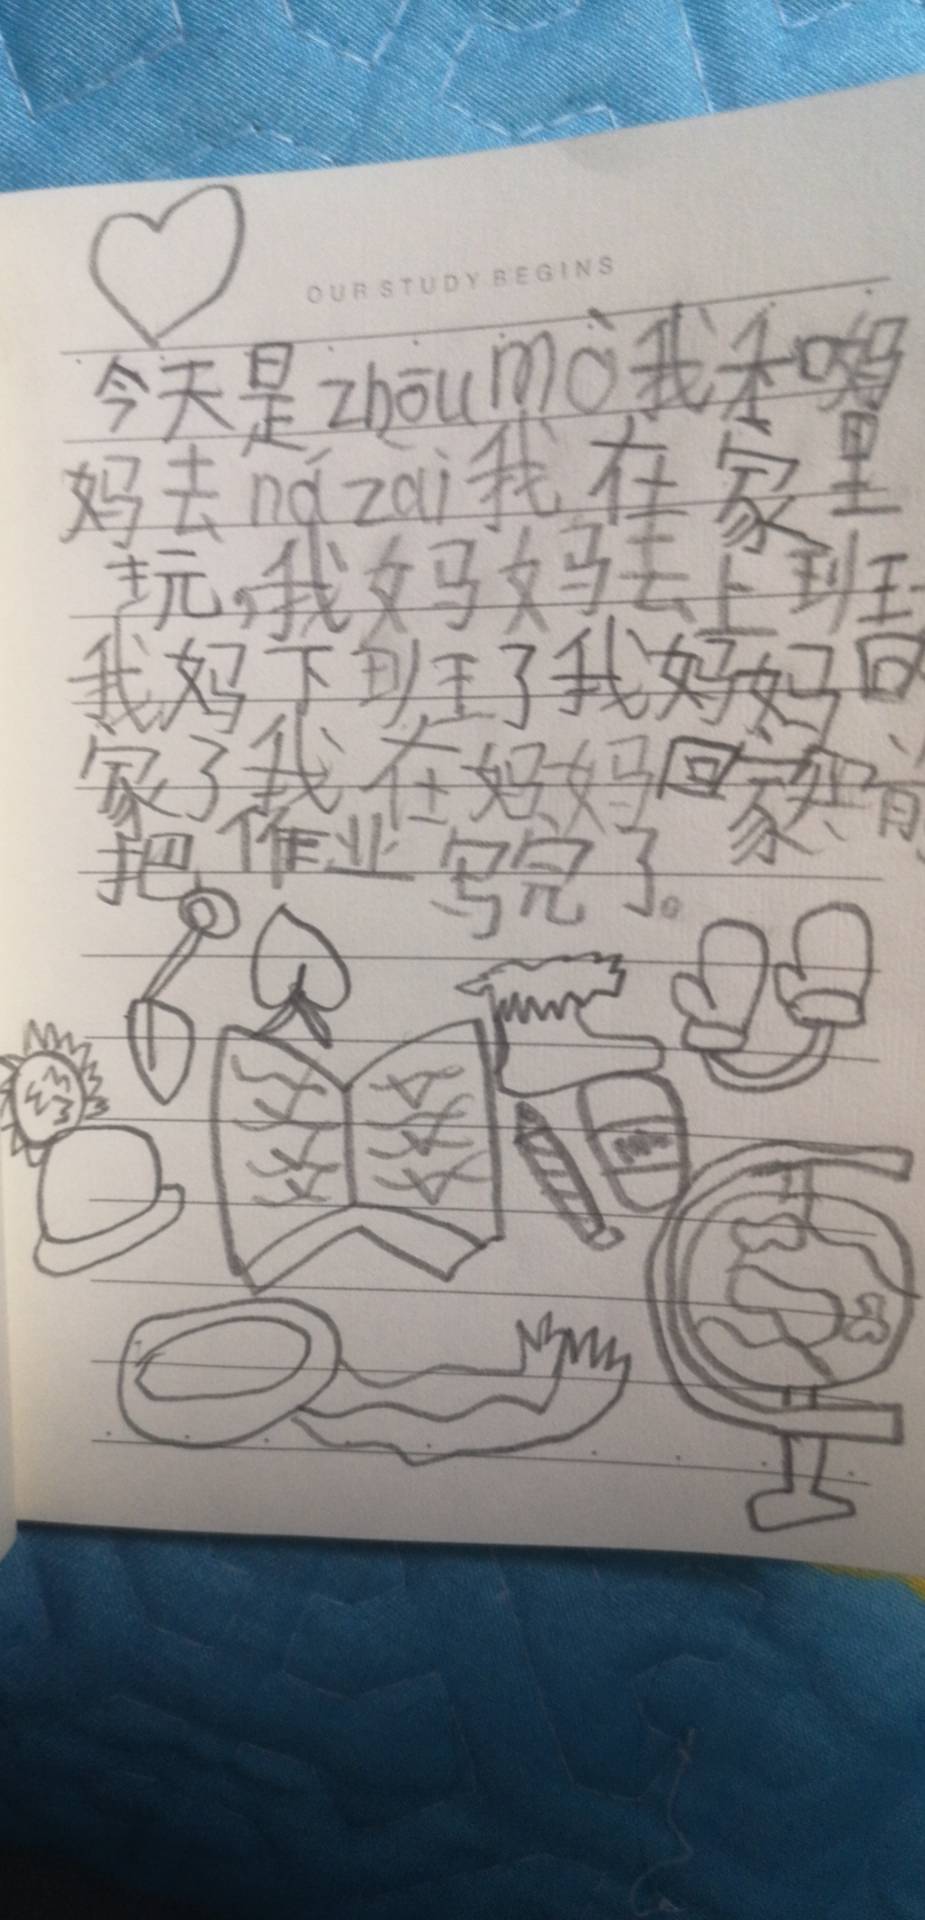 OUR STUDY BEGINS
今天是zhōu mò我和妈
妈去ná zai我在家里
玩,我妈妈去上班
我妈下班了我妈妈回
家了我在妈妈回家之前
把作业写完了。